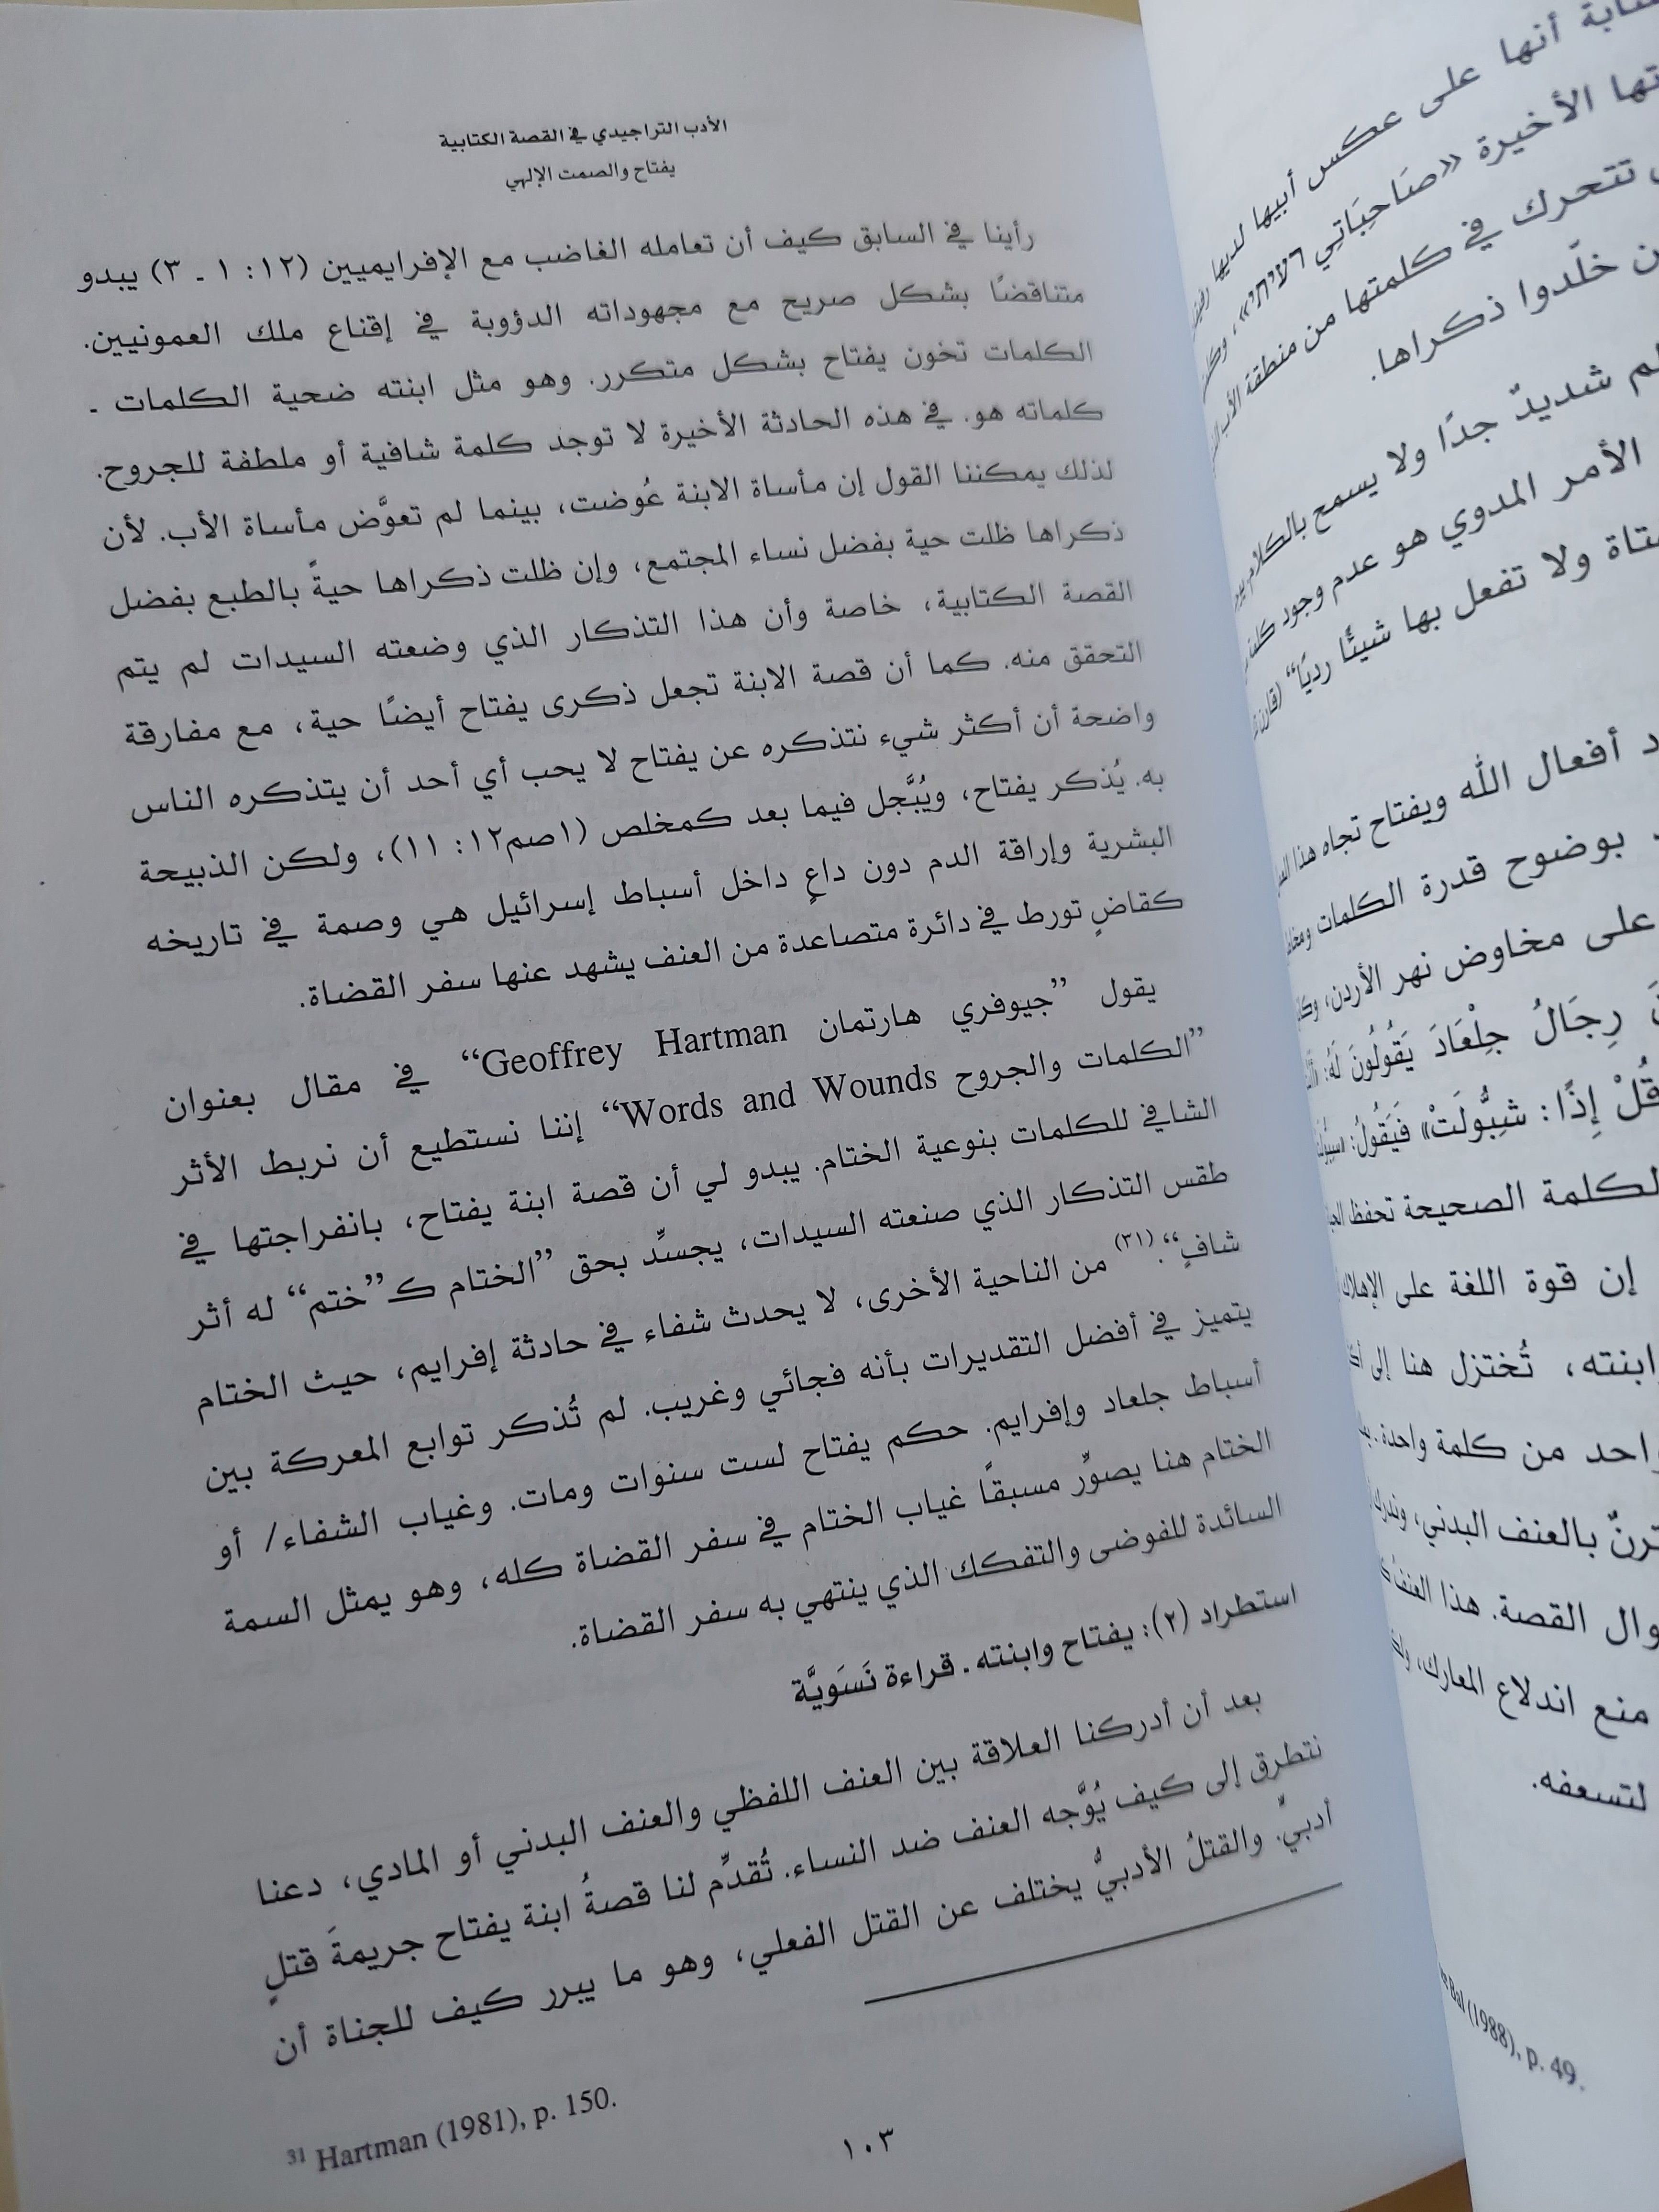 الأدب التراجيدي في القصة الكتابية
يفتاح والصمت الإلهي
رأينا في السابق كيف أن تعامله الغاضب مع الإفرايميين (١٢: ١ ـ ٣) يبدو
متناقضًا بشكل صريح مع مجهوداته الدؤوبة في إقناع ملك العمونيين.
الكلمات تخون يفتاح بشكل متكرر. وهو مثل ابنته ضحية الكلمات ـ
كلماته هو. في هذه الحادثة الأخيرة لا توجد كلمة شافية أو ملطفة للجروح.
لذلك يمكننا القول إن مأساة الابنة عُوضت، بينما لم تعوَّض مأساة الأب. لأن
ذكراها ظلت حية بفضل نساء المجتمع، وإن ظلت ذكراها حيةً بالطبع بفضل
القصة الكتابية، خاصة وأن هذا التذكار الذي وضعته السيدات لم يتم
التحقق منه. كما أن قصة الابنة تجعل ذكرى يفتاح أيضًا حية، مع مفارقة
واضحة أن أكثر شيء نتذكره عن يفتاح لا يحب أي أحد أن يتذكره الناس
به. يُذكر يفتاح، ويُبَّجل فيما بعد كمخلص (١صم١٢: ١١)، ولكن الذبيحة
البشرية وإراقة الدم دون داعٍ داخل أسباط إسرائيل هي وصمة في تاريخه
كقاضٍ تورط في دائرة متصاعدة من العنف يشهد عنها سفر القضاة.
يقول ”جيوفري هارتمان Geoffrey Hartman“ في مقال بعنوان
”الكلمات والجروح Words and Wounds“ إننا نستطيع أن نربط الأثر
الشافي للكلمات بنوعية الختام. يبدو لي أن قصة ابنة يفتاح، بانفراجتها في
طقس التذكار الذي صنعته السيدات، يجسِّد بحق ”الختام كـ”ختم“ له أثر
شافٍ“.(٣١) من الناحية الأخرى، لا يحدث شفاء في حادثة إفرايم، حيث الختام
يتميز في أفضل التقديرات بأنه فجائي وغريب. لم تُذكر توابع المعركة بين
أسباط جلعاد وإفرايم. حكم يفتاح لست سنوات ومات. وغياب الشفاء/ أو
الختام هنا يصوِّر مسبقًا غياب الختام في سفر القضاة كله، وهو يمثل السمة
السائدة للفوضى والتفكك الذي ينتهي به سفر القضاة.
استطراد (٢): يفتاح وابنته ـ قراءة نَسَويَّة
بعد أن أدركنا العلاقة بين العنف اللفظي والعنف البدني أو المادي، دعنا
نتطرق إلى كيف يُوَّجه العنف ضد النساء. تُقدِّم لنا قصةُ ابنة يفتاح جريمةَ قتلٍ
أدبيٍّ. والقتلُ الأدبيُّ يختلف عن القتل الفعلي، وهو ما يبرر كيف للجناة أن
31 Hartman (1981), p. 150.
١٠٣
أنها على عكس أبيها لديها
الأخيرة «صَاحِبَاتِي רעיתי»،
تتحرك في كلمتها من منطقة
خلّدوا ذكراها.
شديدٌ جدًا ولا يسمح بالكلام
الأمر المدوي هو عدم وجود
ولا تفعل بها شيئًا رديًا“
أفعال الله ويفتاح تجاه هذا
بوضوح قدرة الكلمات
على مخاوض نهر الأردن،
رِجَالُ جِلْعَادَ يَقُولُونَ لَهُ:
إِذًا: شِبُّولَتْ» فَيَقُولُ:
الصحيحة تحفظ
إن قوة اللغة على
تُختزل هنا إلى
من كلمة واحدة.
بالعنف البدني،
القصة. هذا العنف
منع اندلاع المعارك،
لتسعفه.
Bal (1988), p. 49.